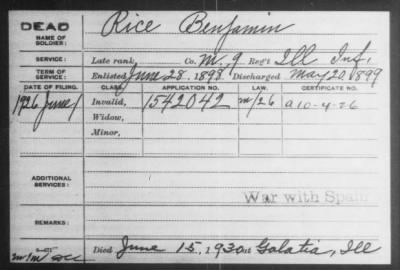 DEAD Rice Benjamin
NAME OF SOLDIER:
SERVICE: Late rank, Co. M, 9 Reg't Ill Inf,
TERM OF SERVICE: Enlisted June 28, 1898 Discharged May 20 1899
DATE OF FILING. CLASS. APPLICATION NO. LAW. CERTIFICATE NO.
1926 June 1 Invalid, 1542042 m/26 a10-4-26
Widow,
Minor,
ADDITIONAL SERVICES:
War with Spain
REMARKS:
Died June 15, 1930 at Galatia, Ill